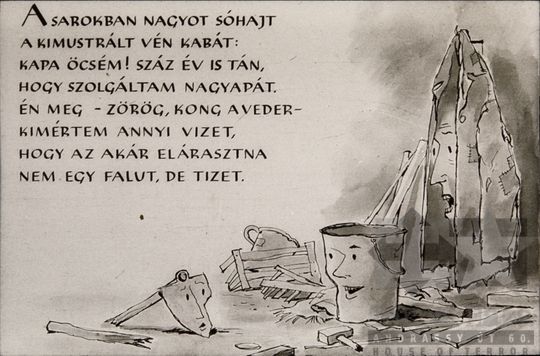 A SAROKBAN NAGYOT SÓHAJT
A KIMUSTRÁLT VÉN KABÁT:
KAPA ÖCSÉM! SZÁZ ÉV IS TÁN,
HOGY SZOLGÁLTAM NAGYAPÁT.
ÉN MEG - ZÖRÖG, KONG A VEDER-
KIMÉRTEM ANNYI VIZET,
HOGY AZ AKÁR ELÁRASZTNA
NEM EGY FALUT, DE TIZET.
ANDRÁSSY ÚT 60.
HOUSE OF TERROR